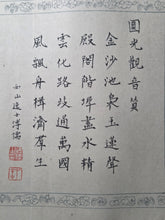 圓光觀音贊
金沙池裊玉蓮聲
殿閣階墀盡水精
雲化路歧通萬國
風飄舟楫濟羣生
西山逸士溥儒